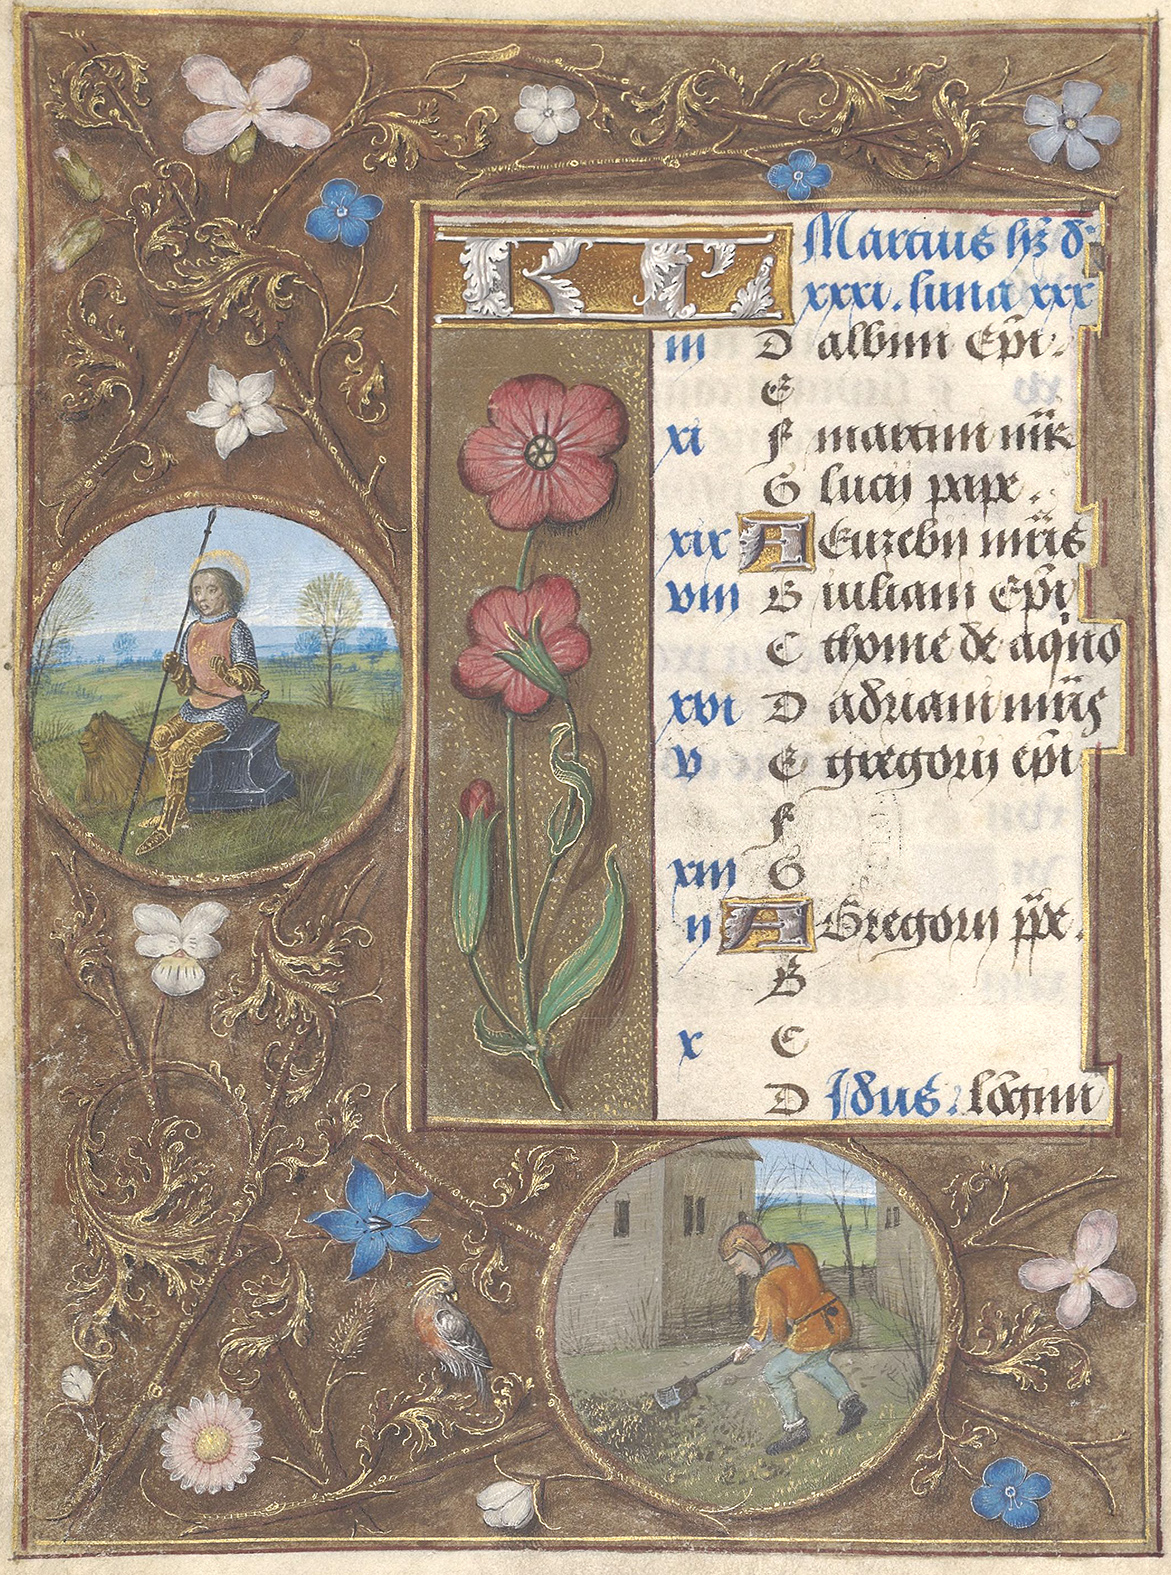 KL Marcius hꝫ d'
xxxi. luna xxx
iii D albini Epi.
E
xi F martini mr̄
G lucij pape.
xix A Euzebii mr̄is
viii B iuliani Epi
C thome de aq̇no
xvi D adriani mr̄is
v E gregorij epi
F
xiii G
ii A Gregorij pp̄e.
B
x C
D Idus. lo̅gini